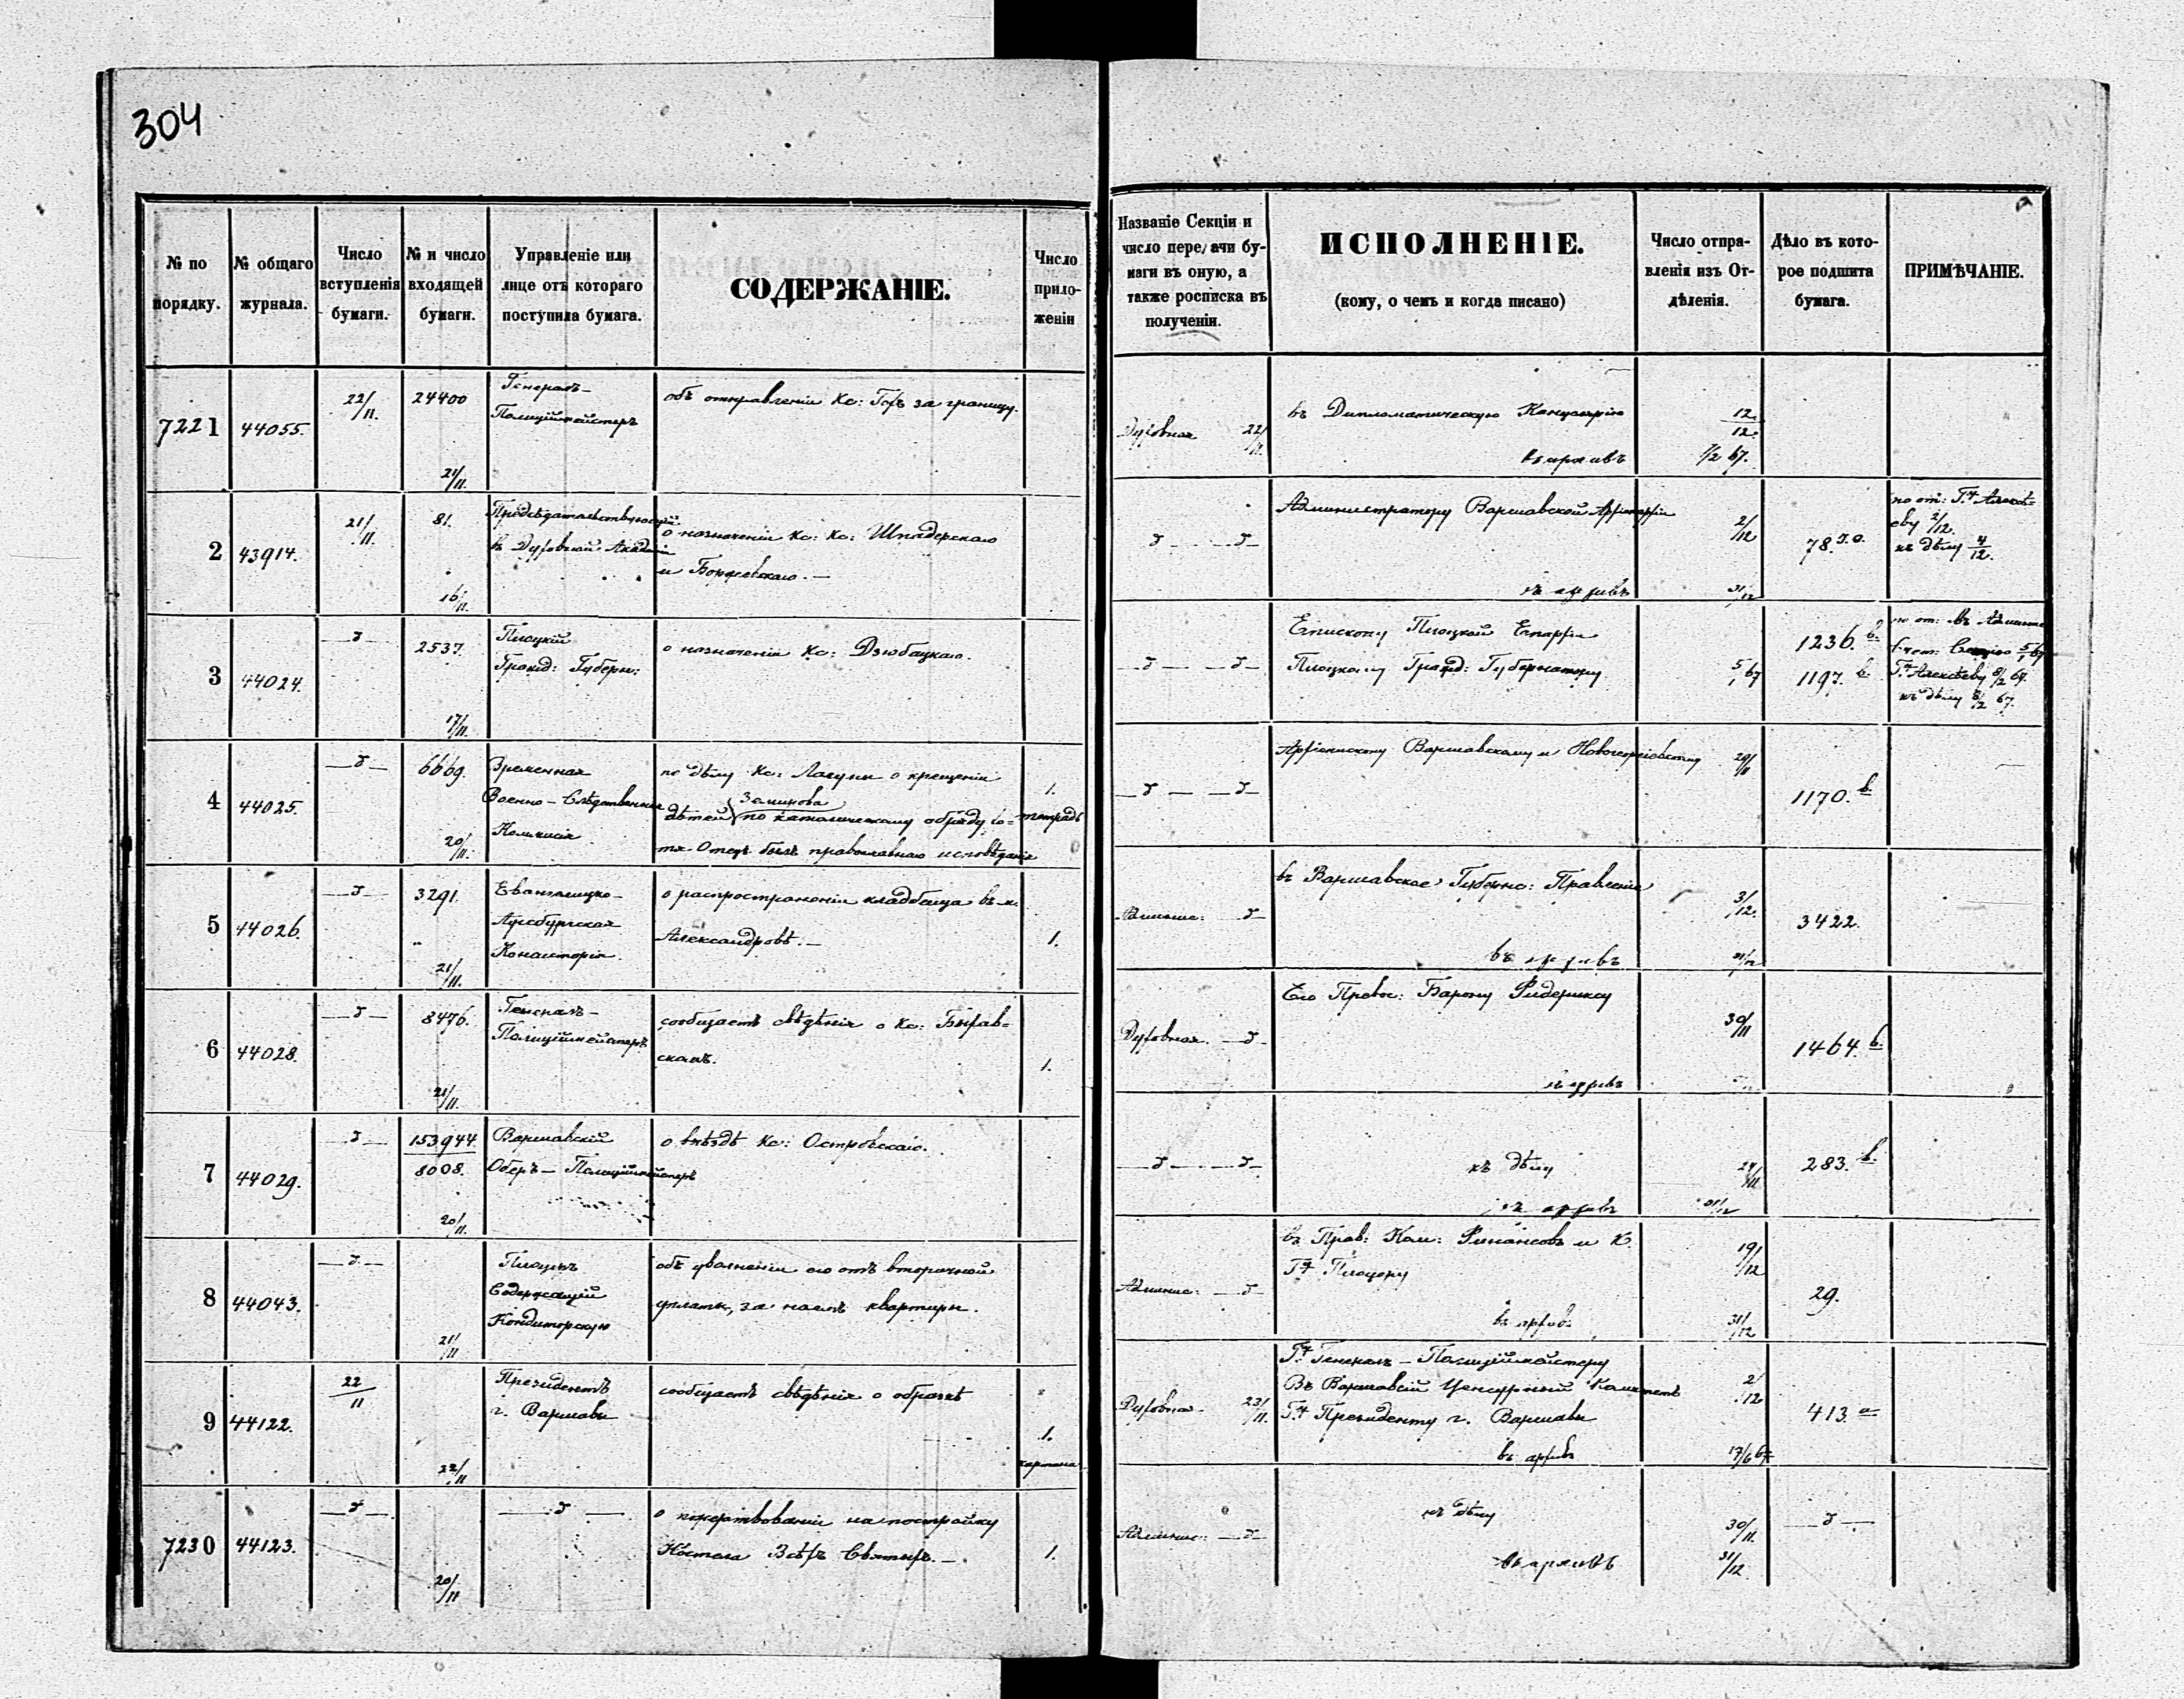 304
№ по порядку.
№ общаго журнала.
Число вступленія бумаги.
№ и число входящей бумаги.
Управленіе или лице отъ котораго поступила бумага.
СОДЕРЖАНІЕ.
Число приложеній
Названіе Секціи и число передачи бумаги въ оную, а также росписка въ полученіи.
ИСПОЛНЕНІЕ.
(кому, о чемъ и когда писано)
Число отправленія изъ Отдѣленія.
Дѣло въ которое подшита бумага.
ПРИМѢЧАНІЕ.
7221 44055. 22/11. 24400 21/11.
Генералъ-
Полиціймейстеръ
объ отправленіи Кс: за границу.
Духовная 22/11.
въ Дипломатическую Канцелярію 12/12.
въ архивъ 7/2 67.
2 43914. 21/11. 81. 16/11.
Предсѣдательствующій
въ Духовной Академіи
о назначеніи Кс: Кс: Шпадерскаго
и
Администратору Варшавской Архіепархіи 2/12
78.
въ архивъ 31/12
по от: Гну Алексѣ-
еву 2/12.
къ дѣлу 4/12.
3 44024. 2537. 17/11.
Плоцкій
Гражд: Губерн:
о назначеніи Кс: Дзюбацкаго.
Епископу Плоцкой Епархіи
Плоцкому Гражд: Губернатору 5/1 67
1236. в.
1197. в.
Гну Алексѣеву 8/2 67.
къ дѣлу 8/2 67.
4 44025. 6669. 20/11.
Временная
Военно-Слѣдственная
Комисія
по дѣлу Кс: Лагуны о крещеніи
дѣтей по католическому обряду хо-
тя Отецъ былъ православнаго исповѣданія
1.
тетрадь
Архіепископу Варшавскому и Новогеоргіевскому 29/11
1170. в.
5 44026. 3291. 21/11.
Евангелицко-
Аугсбургская
Консисторія
о распространеніи кладбища въ м.
Александровѣ.-
1.
Админис:
въ Варшавское Губерн: Правленіе 3/12.
3422.
въ архивъ 31/12
6 44028. 8476. 21/11.
Генералъ-
Полиціймейстеръ
сообщаетъ свѣдѣнія о Кс:
скомъ.
1.
Духовная
Его Превос: Барону Фридериксу 30/11
1464. в.
въ архивъ
7 44029. 153944 / 8008. 20/11.
Варшавскій
Оберъ-Полиціймейстеръ
о въѣздѣ Кс: Островскаго.
къ дѣлу 24/11
283. в.
въ архивъ 31/12
8 44043. 21/11
Содержащій
Кондиторскую
объ уволненіи его отъ вторичной
уплаты, за наемъ квартиры.
Админис:
въ Прав: Ком: Финансовъ и К.
19/12
29.
въ архивъ 31/12
9 44122. 22/11 22/11
Президентъ
г. Варшавы
сообщаетъ свѣдѣнія о образкѣ
1.
Духовная 23/11.
Гну Генералъ-Полиціймейстеру
Въ Варшавскій Цензурный Комитетъ 2/12
Гну Президенту г. Варшавы
413. а
въ архивъ 17/6 67
7230 44123. 20/11
о пожертвованіи на постройку
Костела Всѣхъ Святыхъ.-
1.
Админис:
къ дѣлу 30/11.
въ архивъ 31/12